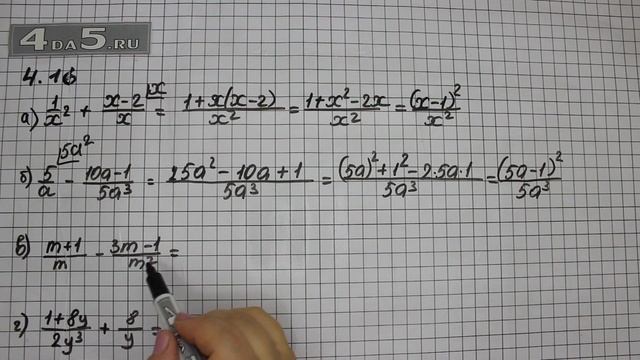 4DA5.RU
4.16
а) 1/x² + (x-2)/x |x = (1+x(x-2))/x² = (1+x²-2x)/x² = (x-1)²/x²
б) 5/a |5a² - (10a-1)/5a³ = (25a²-10a+1)/5a³ = ((5a)²+1²-2·5a·1)/5a³ = (5a-1)²/5a³
в) (m+1)/m - (3m-1)/m² =
г) (1+8y)/2y³ + 8/y =